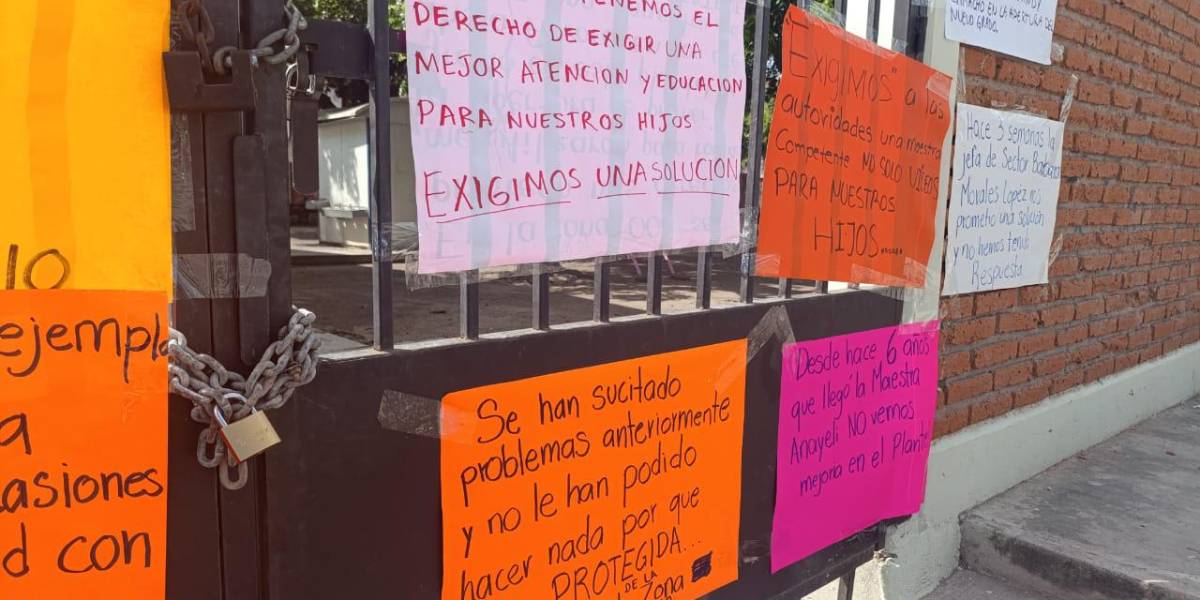 10
ejempl
a
casiones
d con
TENEMOS EL
DERECHO DE EXIGIR UNA
MEJOR ATENCION Y EDUCACION
PARA NUESTROS HIJOS
EXIGIMOS UNA SOLUCION
"EXIGIMOS" a las
autoridades una maestra
Competente NO SOLO VIDEOS
PARA NUESTROS
HIJOS......
EN LA APERTURA DE
NUEVO GRADO.
Hace 3 semanas la
jefa de Sector Barbara
Morales Lopez nos
prometio una solución
y no hemos tenido
Respuesta
Se han sucitado
problemas anteriormente
y no le han podido
hacer nada por que
PROTEGIDA...
DE LA
Zona
Desde hace 6 años
que llegó la Maestra
Anayeli NO vemos
mejoria en el Plantel